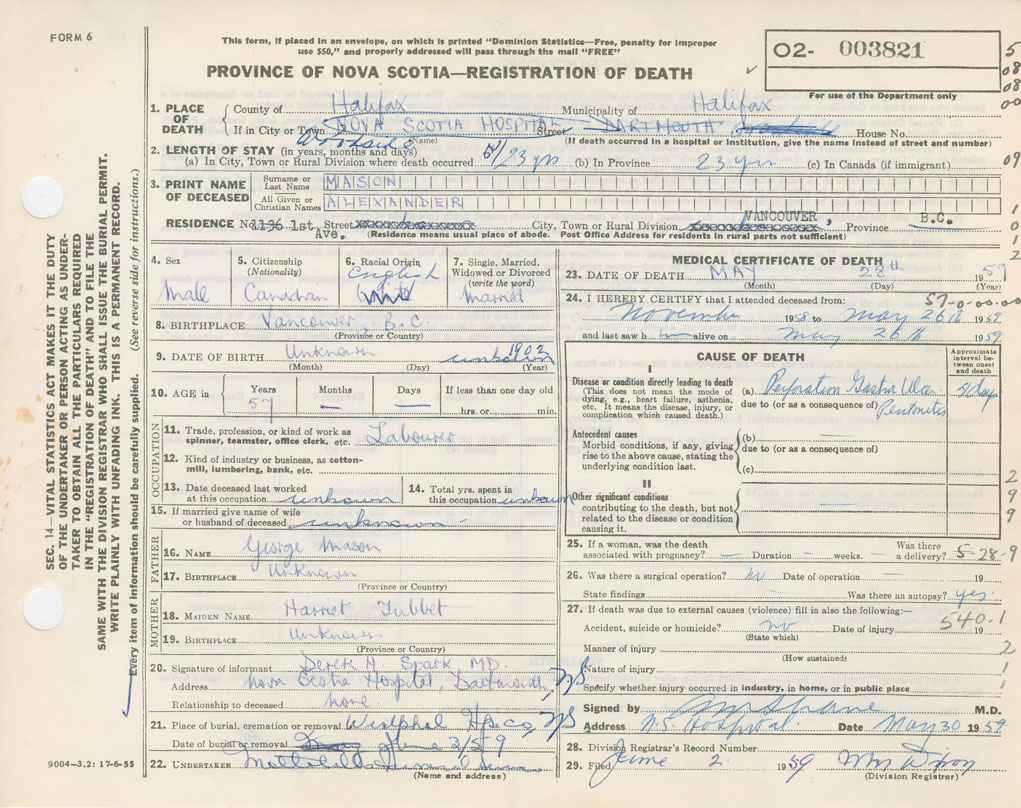 FORM 6
This form, if placed in an envelope, on which is printed "Dominion Statistics—Free, penalty for improper
use $50," and properly addressed will pass through the mail "FREE"
O2- 003821
For use of the Department only
PROVINCE OF NOVA SCOTIA—REGISTRATION OF DEATH
1. PLACE OF DEATH
County of Halifax Municipality of Halifax
If in City or Town NOVA SCOTIA HOSPITAL Street DARTMOUTH House No.
(Name) (If death occurred in a hospital or institution, give the name instead of street and number)
2. LENGTH OF STAY (in years, months and days)
(a) In City, Town or Rural Division where death occurred 23 yrs (b) In Province 23 yrs (c) In Canada (if immigrant)
3. PRINT NAME OF DECEASED
Surname or Last Name MASON
All Given or Christian Names ALEXANDER
RESIDENCE No. 1136 1st Street Ave. City, Town or Rural Division VANCOUVER, Province B.C.
(Residence means usual place of abode. Post Office Address for residents in rural parts not sufficient)
4. Sex
Male
5. Citizenship
(Nationality)
Canadian
6. Racial Origin
English
White
7. Single, Married,
Widowed or Divorced
(write the word)
Married
8. BIRTHPLACE Vancouver, B.C.
(Province or Country)
9. DATE OF BIRTH Unknown unknown 1902
(Month) (Day) (Year)
10. AGE in Years Months Days If less than one day old
57 — — hrs. or min.
OCCUPATION
11. Trade, profession, or kind of work as
spinner, teamster, office clerk, etc. Labourer
12. Kind of industry or business, as cotton-
mill, lumbering, bank, etc.
13. Date deceased last worked
at this occupation unknown
14. Total yrs. spent in
this occupation unknown
15. If married give name of wife
or husband of deceased unknown
FATHER
16. NAME George Mason
17. BIRTHPLACE Unknown
(Province or Country)
MOTHER
18. MAIDEN NAME Harriet Tubbet
19. BIRTHPLACE Unknown
(Province or Country)
20. Signature of informant Derek H. Spark, MD.
Address Nova Scotia Hospital, Dartmouth, NS
Relationship to deceased none
21. Place of burial, cremation or removal Westphal Hfx Co, NS
Date of burial or removal June 2/59
22. UNDERTAKER
(Name and address)
9004—3.2: 17-6-55
MEDICAL CERTIFICATE OF DEATH
23. DATE OF DEATH MAY 28th 1959
(Month) (Day) (Year)
24. I HEREBY CERTIFY that I attended deceased from: 57-0-00-00
November 1958 to May 26th 1959
and last saw h im alive on May 26th 1959
CAUSE OF DEATH
Approximate interval between onset and death
I
Disease or condition directly leading to death
(This does not mean the mode of dying, e.g., heart failure, asthenia, etc. It means the disease, injury, or complication which caused death.)
(a) Perforation Gastric Ulcer
due to (or as a consequence of) Peritonitis
days
Antecedent causes
Morbid conditions, if any, giving rise to the above cause, stating the underlying condition last.
(b)
due to (or as a consequence of)
(c)
II
Other significant conditions
contributing to the death, but not related to the disease or condition causing it.
25. If a woman, was the death
associated with pregnancy? — Duration — weeks. Was there a delivery? 5-28-9
26. Was there a surgical operation? no Date of operation — 19
State findings Was there an autopsy? yes
27. If death was due to external causes (violence) fill in also the following:—
Accident, suicide or homicide? no Date of injury 19
(State which)
540.1
Manner of injury
(How sustained)
Nature of injury
Specify whether injury occurred in industry, in home, or in public place
Signed by M.D.
Address N.S. Hospital Date May 30 1959
28. Division Registrar's Record Number
29. Filed June 2 1959 Wm Dixon
(Division Registrar)
SEC. 14—VITAL STATISTICS ACT MAKES IT THE DUTY
OF THE UNDERTAKER OR PERSON ACTING AS UNDER-
TAKER TO OBTAIN ALL THE PARTICULARS REQUIRED
IN THE "REGISTRATION OF DEATH" AND TO FILE THE
SAME WITH THE DIVISION REGISTRAR WHO SHALL ISSUE THE BURIAL PERMIT.
WRITE PLAINLY WITH UNFADING INK. THIS IS A PERMANENT RECORD.
Every item of information should be carefully supplied. (See reverse side for instructions.)